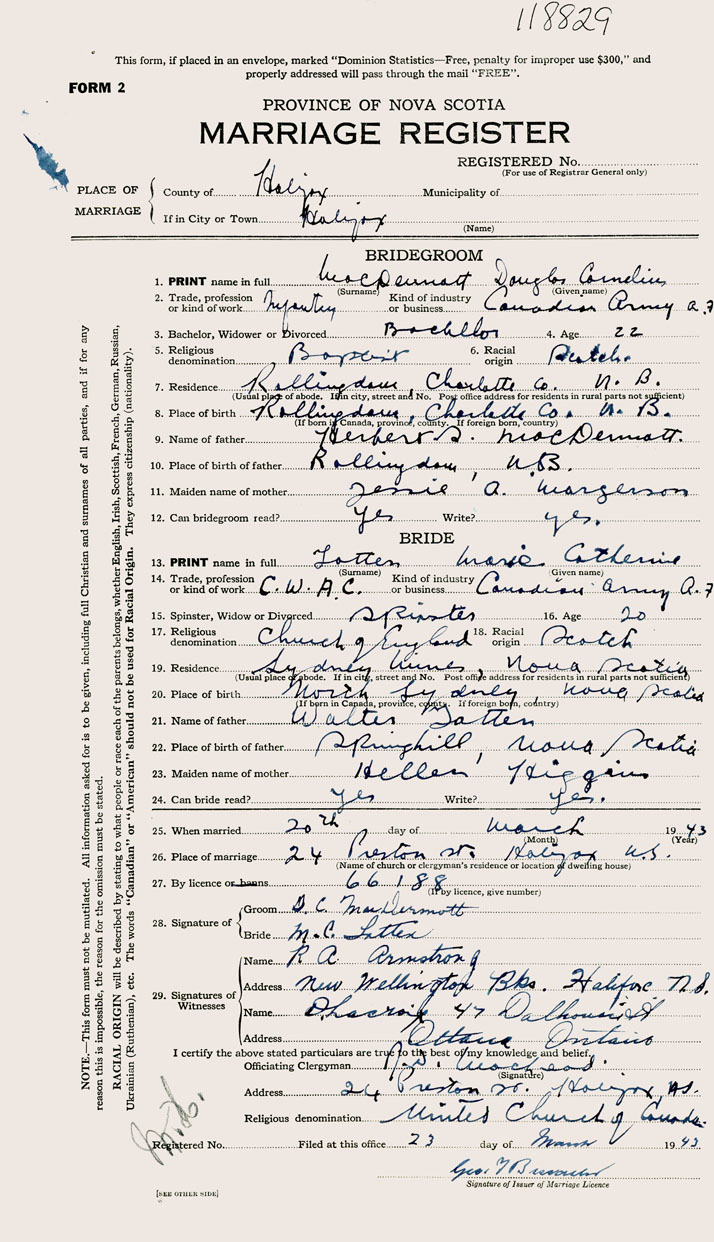 118829
This form, if placed in an envelope, marked “Dominion Statistics—Free, penalty for improper use $300,” and
properly addressed will pass through the mail “FREE”.
FORM 2
PROVINCE OF NOVA SCOTIA
MARRIAGE REGISTER
REGISTERED No.
(For use of Registrar General only)
PLACE OF MARRIAGE
County of Halifax Municipality of
If in City or Town Halifax
(Name)
BRIDEGROOM
1. PRINT name in full MacDermott Douglas Cornelius
(Surname) (Given name)
2. Trade, profession or kind of work Infantry Kind of industry or business Canadian Army A.F
3. Bachelor, Widower or Divorced Bachellor 4. Age 22
5. Religious denomination Baptist 6. Racial origin Scotch.
7. Residence Rollingdam, Charlotte Co. N. B.
(Usual place of abode. If in city, street and No. Post office address for residents in rural parts not sufficient)
8. Place of birth Rollingdam, Charlotte Co. N. B.
(If born in Canada, province, county. If foreign born, country)
9. Name of father Herbert S. MacDermott.
10. Place of birth of father Rollingdam, N.B.
11. Maiden name of mother Jessie A. Margerson
12. Can bridegroom read? yes Write? yes.
BRIDE
13. PRINT name in full Totten Marie Catherine
(Surname) (Given name)
14. Trade, profession or kind of work C.W.A.C. Kind of industry or business Canadian Army A.F
15. Spinster, Widow or Divorced Spinster 16. Age 20
17. Religious denomination Church of England 18. Racial origin Scotch
19. Residence Sydney Mines, Nova Scotia
(Usual place of abode. If in city, street and No. Post office address for residents in rural parts not sufficient)
20. Place of birth North Sydney, Nova Scotia
(If born in Canada, province, county. If foreign born, country)
21. Name of father Walter Totten
22. Place of birth of father Springhill, Nova Scotia
23. Maiden name of mother Hellen Higgins
24. Can bride read? yes Write? yes.
25. When married 20th day of March 1943
(Month) (Year)
26. Place of marriage 24 Preston St. Halifax N.S.
(Name of church or clergyman's residence or location of dwelling house)
27. By licence or banns 66188
(If by licence, give number)
28. Signature of
Groom D. C. MacDermott
Bride M. C. Totten
29. Signatures of Witnesses
Name R A Armstrong
Address New Wellington Bks. Halifax N.S.
Name 47 Dalhousie St
Address Ottawa Ontario
I certify the above stated particulars are true to the best of my knowledge and belief.
Officiating Clergyman
(Signature)
Address 24 Preston St. Halifax, N.S.
Religious denomination United Church of Canada.
Registered No. Filed at this office 23 day of March 1943
Geo.
Signature of Issuer of Marriage Licence
[SEE OTHER SIDE]
NOTE.—This form must not be mutilated. All information asked for is to be given, including full Christian and surnames of all parties, and if for any
reason this is impossible, the reason for the omission must be stated.
RACIAL ORIGIN will be described by stating to what people or race each of the parents belongs, whether English, Irish, Scottish, French, German, Russian,
Ukrainian (Ruthenian), etc. The words “Canadian” or “American” should not be used for Racial Origin. They express citizenship (nationality).